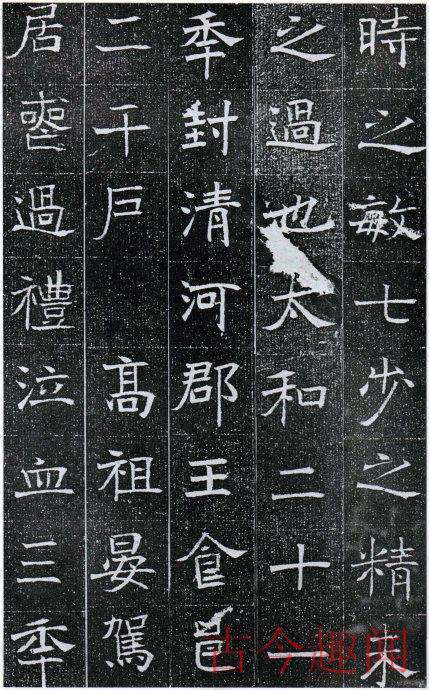 時之敏七步之精未
之過也太和二十一
秊封清河郡王食邑
二千戶 高祖晏駕
居喪過禮泣血三秊
古今趣闻